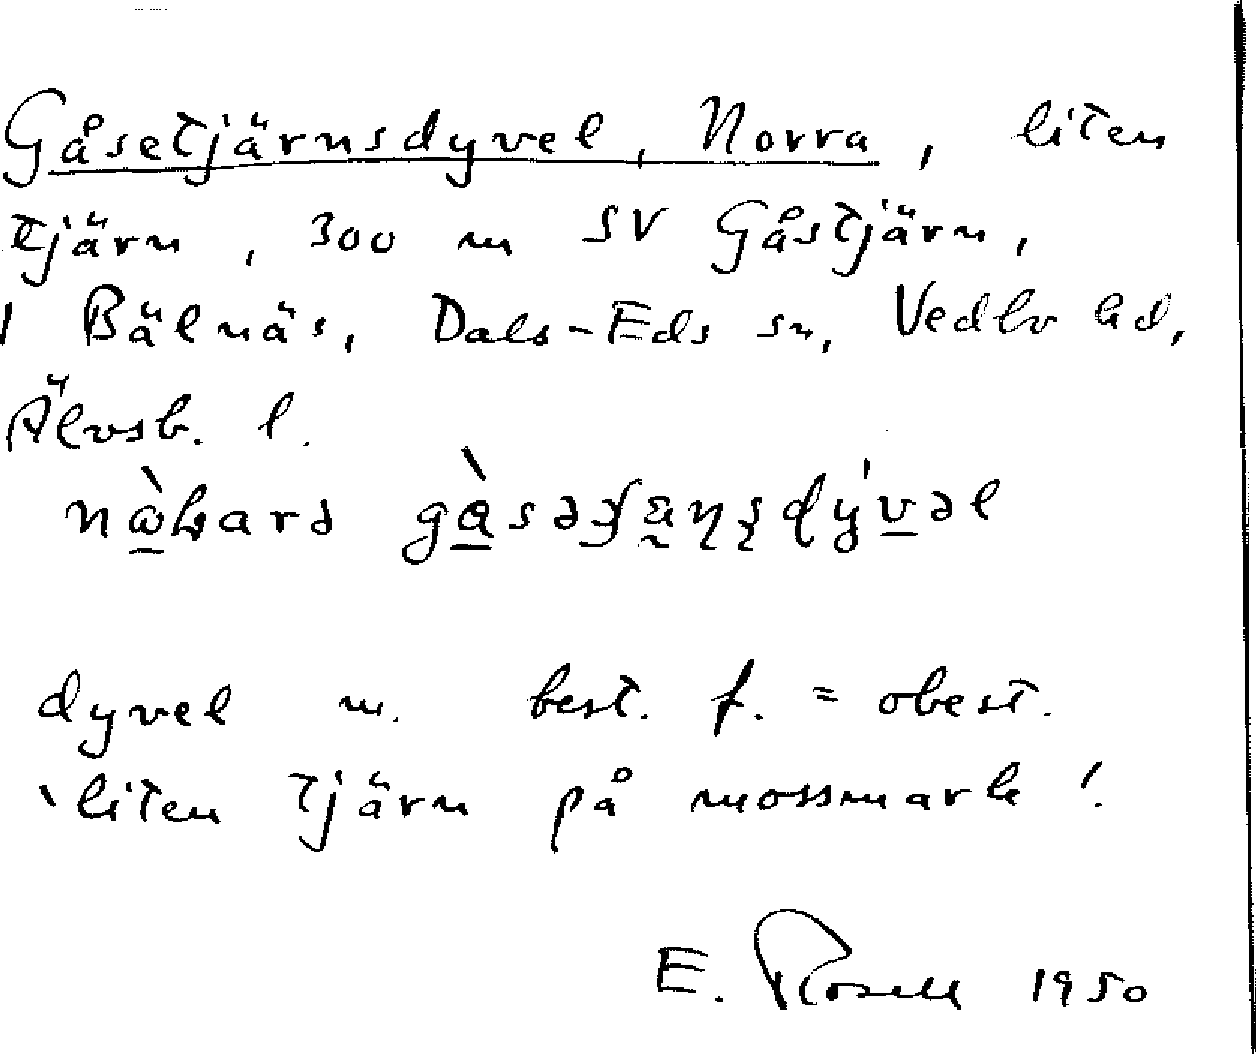 Gåsetjärnsdyvel, Norra, liten
tjärn, 300 m SV Gåstjärn,
i Bälnäs, Dals-Eds sn, Vedbo hd,
Älvsb. l.
dyvel m. best. f. = obest.
'liten tjärn på mossmark'.
E. Rosell 1950